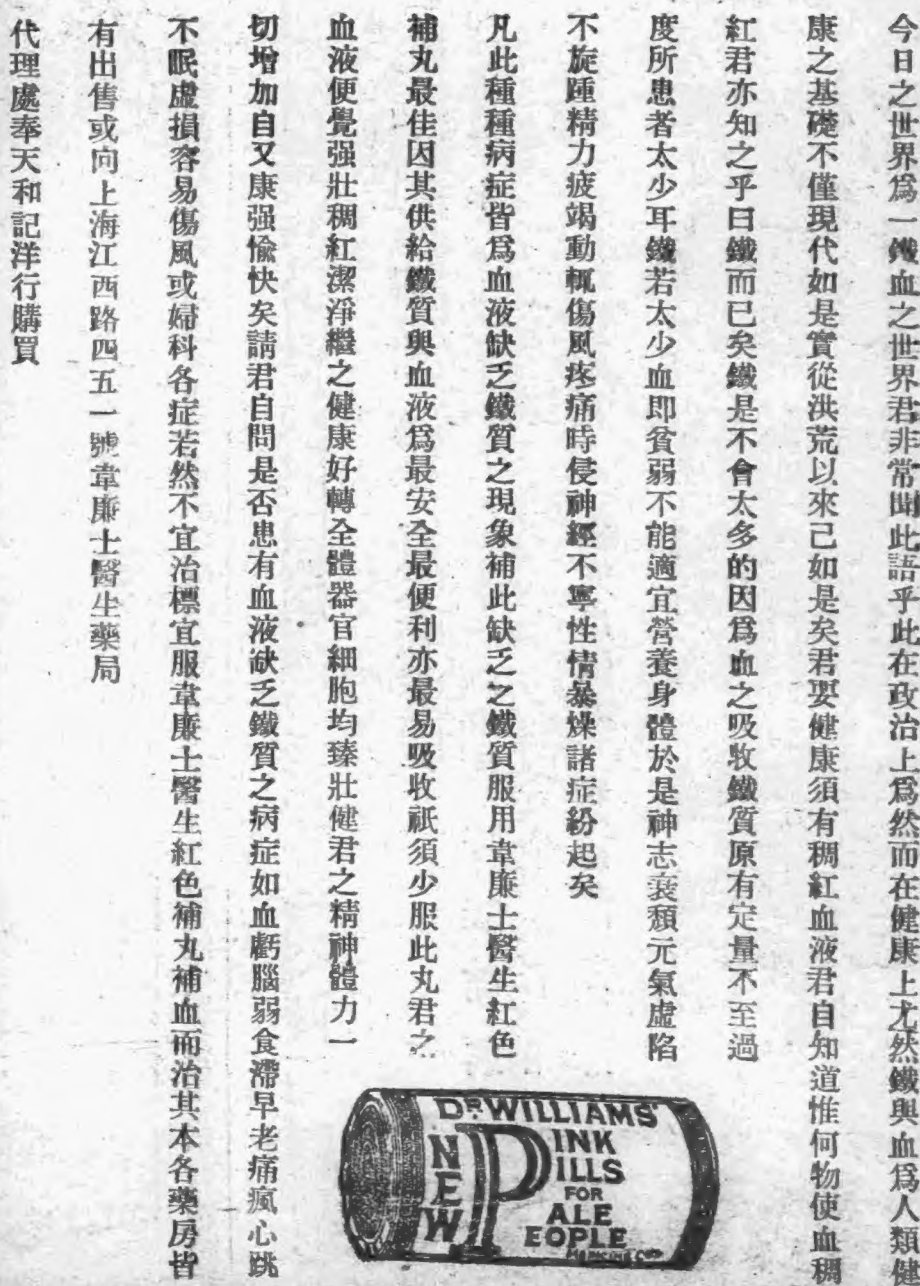 今日之世界爲一鐵血之世界君非常聞此語乎此在政治上爲然而在健康上尤然鐵與血爲人類健
康之基礎不僅現代如是實從洪荒以來己如是矣君要健康須有稠紅血液君自知道惟何物使血稠
紅君亦知之乎曰鐵而已矣鐵是不會太多的因爲血之吸收鐵質原有定量不至過
度所患者太少耳鐵若太少血即貧弱不能適宜營養身體於是神志衰頹元氣虛陷
不旋踵精力疲竭動輒傷風疼痛時侵神經不寧性情暴燥諸症紛起矣
凡此種種病症皆爲血液缺乏鐵質之現象補此缺乏之鐵質服用韋廉士醫生紅色
補丸最佳因其供給鐵質與血液爲最安全最便利亦最易吸收祇須少服此丸君之
血液便覺强壯稠紅潔淨繼之健康好轉全體器官細胞均臻壯健君之精神體力一
切增加自又康强愉快矣請君自問是否患有血液缺乏鐵質之病症如血虧腦弱食滯早老痛瘋心跳
不眠虛損容易傷風或婦科各症若然不宜治標宜服韋廉士醫生紅色補丸補血而治其本各藥房皆
有出售或向上海江西路四五一號韋廉士醫生藥局
代理處奉天和記洋行購買
DR WILLIAMS'
NEW
PINK
PILLS
FOR
PALE
PEOPLE
MEDICINE CO